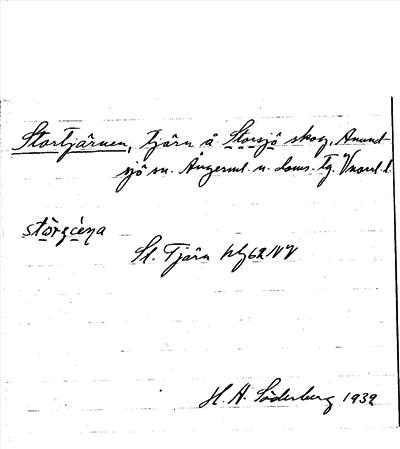 Stortjärnen, tjärn å Storsjö skog, Anund-
sjö sn. Ångerml. n. doms. Tg. Vnorrl. l.
stòrʒéṇa
St. Tjärn blg 62 NV
H. A. Söderberg 1932